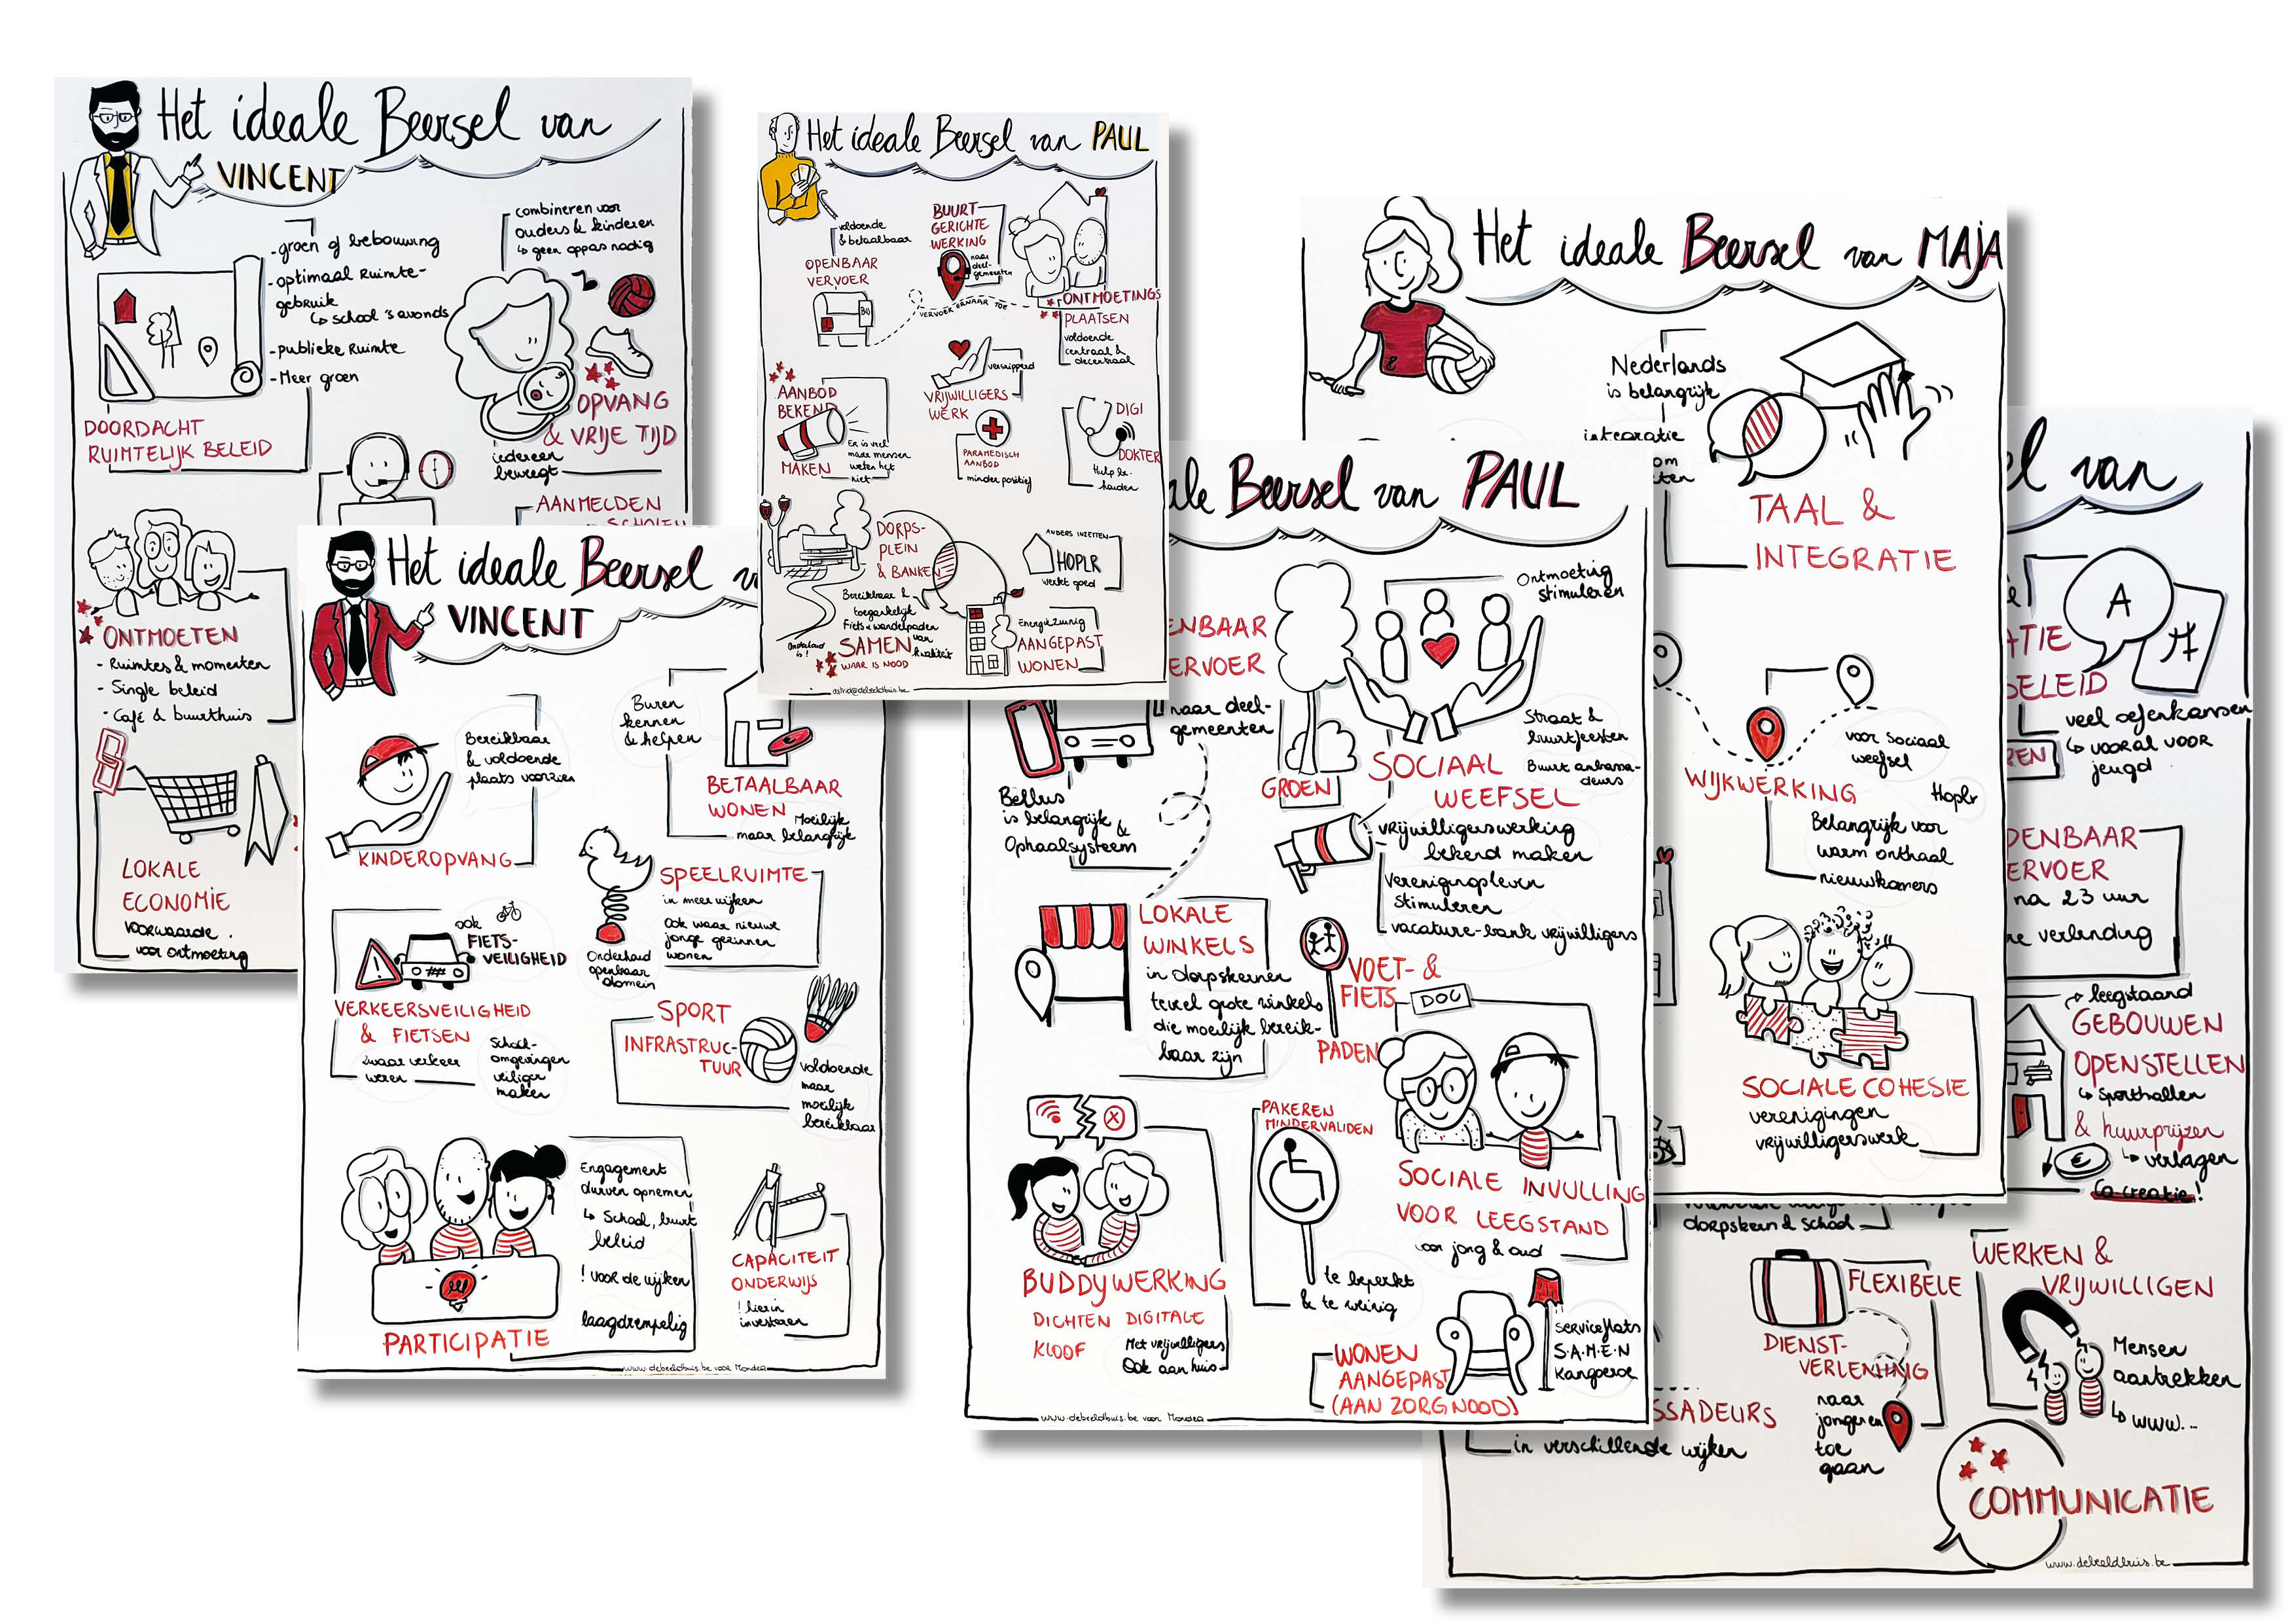 Het ideale Beersel van
VINCENT
- groen of bebouwing
- optimaal Ruimte-
gebruik
↳ school 's avonds
- publieke Ruimte
- Meer groen
DOORDACHT
RUIMTELIJK BELEID
combineren voor
ouders & kinderen
↳ geen oppas nodig
OPVANG
& VRIJE TIJD
iedereen
beweegt
AANMELDEN
SCHOLEN
ONTMOETEN
- Ruimtes & momenten
- Single beleid
- Café & buurthuis
LOKALE
ECONOMIE
VOORWAARDE
voor ontmoeting
Het ideale Beersel
VINCENT
Bereikbaar
& voldoende
plaats voorzien
KINDEROPVANG
Buren
kennen
& helpen
BETAALBAAR
WONEN
Moeilijk
maar belangrijk
SPEELRUIMTE
in meer wijken
Ook waar nieuwe
jonge gezinnen
wonen
Onderhoud
openbaar
domein
ook
FIETS-
VEILIGHEID
VERKEERSVEILIGHEID
& FIETSEN
zwaar verkeer
weren
School-
omgevingen
veiliger
maken
SPORT
INFRASTRUC-
TUUR
voldoende
maar
moeilijk
bereikbaar
Engagement
durven opnemen
↳ School, buurt
beleid
! voor de wijken
laagdrempelig
PARTICIPATIE
CAPACITEIT
ONDERWIJS
! hier in
investeren
www.debeeldhuis.be voor Mondea
Het ideale Beersel van PAUL
voldoende
& betaalbaar
OPENBAAR
VERVOER
BUS
BUURT
GERICHTE
WERKING
naar
deel-
gemeenten
VERVOER ERNAAR TOE
ONTMOETINGS
PLAATSEN
voldoende
centraal &
decentraal
AANBOD
BEKEND
MAKEN
Er is veel
maar mensen
weten het
niet
versnipperd
VRIJWILLIGERS
WERK
PARAMEDISCH
AANBOD
minder positief
DIGI
DOKTER
Hulp be-
houden
DORPS-
PLEIN
& BANKEN
Bereikbaar &
toegankelijk
Fiets & wandelpaden
van
kwaliteit
Onderhoud
is!
SAMEN
WAAR IS NOOD
ANDERS INZETTEN
HOPLR
werkt goed
Energiezuinig
AANGEPAST
WONEN
astrid@debeeldhuis.be
ale Beersel van PAUL
ENBAAR
ERVOER
naar deel-
gemeenten
Belbus
is belangrijk &
Ophaalsysteem
GROEN
Ontmoeting
stimuleren
SOCIAAL
WEEFSEL
Straat &
buurtfeesten
Buurt ambassa-
deurs
vrijwilligerswerking
bekend maken
Verenigingsleven
stimuleren
vacature-bank vrijwilligers
LOKALE
WINKELS
in dorpskernen
teveel grote winkels
die moeilijk bereik-
baar zijn
VOET- &
FIETS
PADEN
DOC
SOCIALE INVULLING
VOOR LEEGSTAND
voor jong & oud
BUDDYWERKING
DICHTEN DIGITALE
KLOOF
Met vrijwilligers
Ook aan huis
PAKEREN
MINDERVALIDEN
te beperkt
& te weinig
WONEN
AANGEPAST
(AAN ZORGNOOD)
Serviceflats
S.A.M.E.N
Kangoeroe
www.debeeldhuis.be voor Mondea
Het ideale Beersel van MAJA
Nederlands
is belangrijk
integratie
om
TAAL &
INTEGRATIE
WIJKWERKING
voor sociaal
weefsel
Hoplr
Belangrijk voor
warm onthaal
nieuwkomers
SOCIALE COHESIE
verenigingen
vrijwilligerswerk
el van
A
ATIE
BELEID
veel oefenkansen
↳ vooral voor
jeugd
REN
PENBAAR
ERVOER
na 23 uur
verbinding
leegstaand
GEBOUWEN
OPENSTELLEN
↳ Sporthallen
& huurprijzen
€
↳ verlagen
Co creatie!
dorpskern & school
FLEXIBELE
DIENST-
VERLENING
naar
jongeren
toe
gaan
WERKEN &
VRIJWILLIGEN
Mensen
aantrekken
↳ www...
SSADEURS
in verschillende wijken
COMMUNICATIE
www.debeeldhuis.be